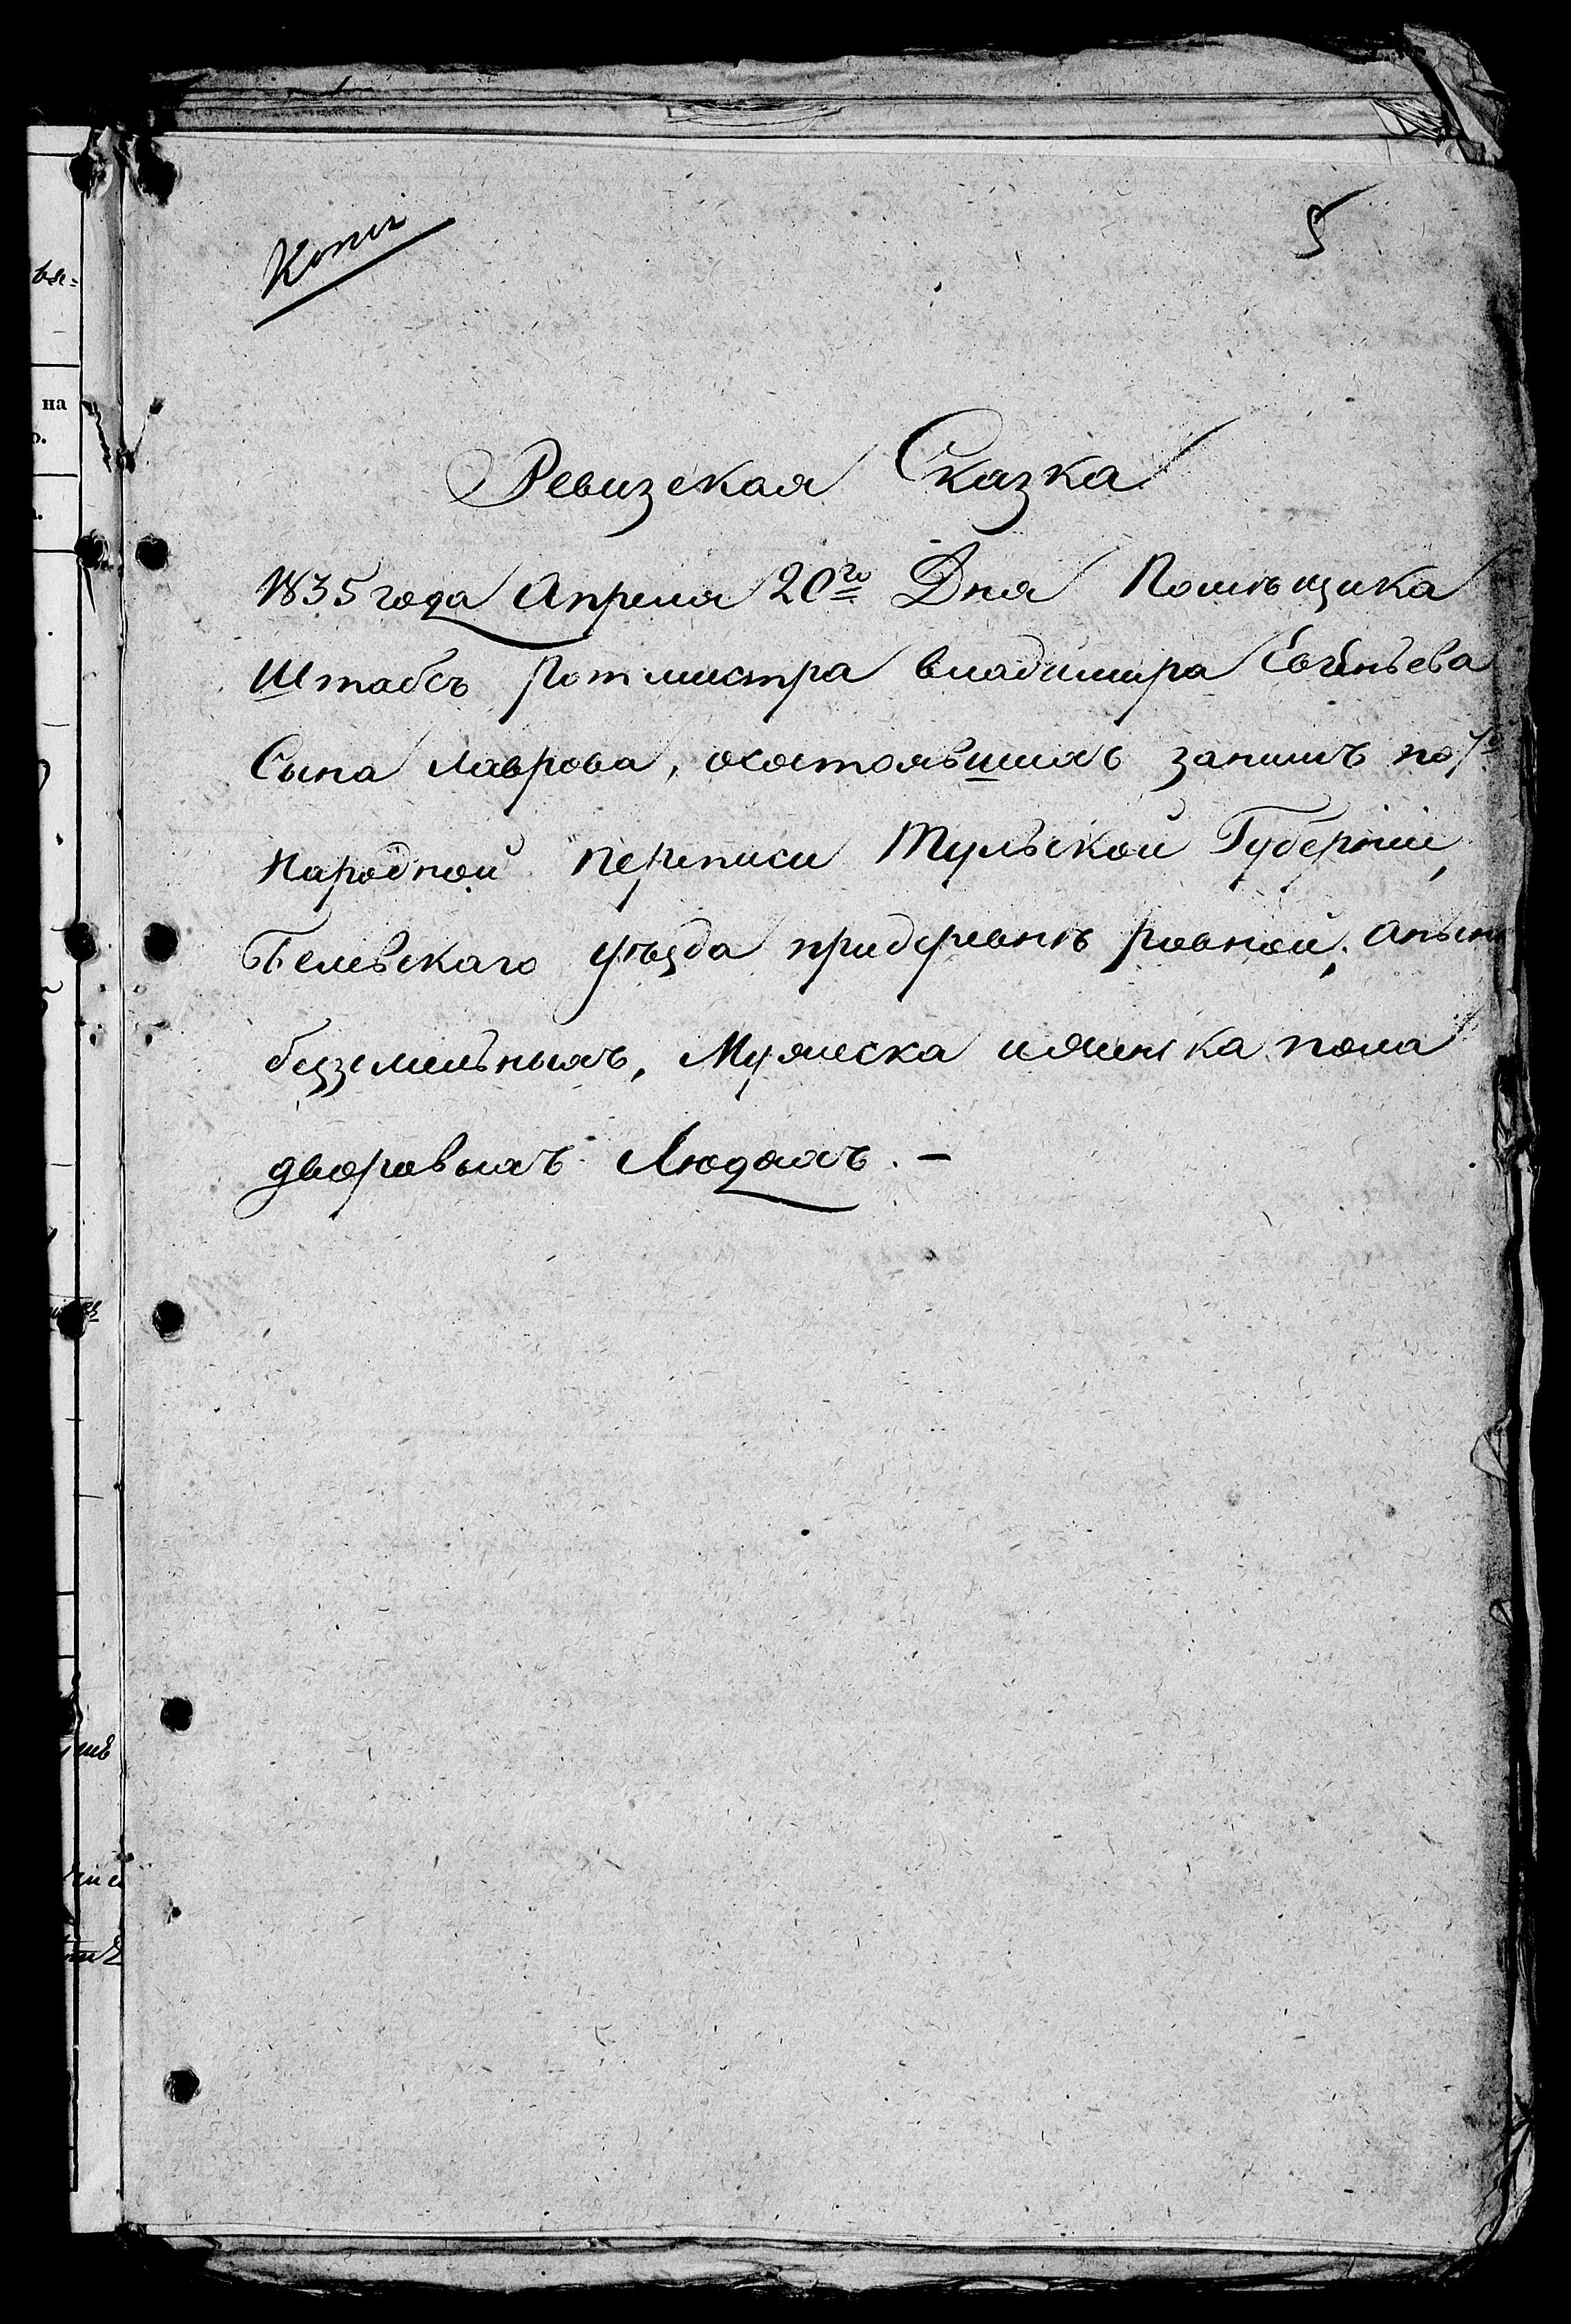 Копія
5
Ревизская Сказка
1835 года Апреля 20го Дня Помѣщика
Штабсъ Ротмистра владимира Евгеньева
Сына Лаврова, осостоявшихъ занимъ по 7й
Народной переписи Тульской Губерніи,
Белевскаго уѣзда придеревнѣ ровной; аныне
безземельныхъ, Мужеска иженска пола
дворовыхъ Людяхъ. —
на